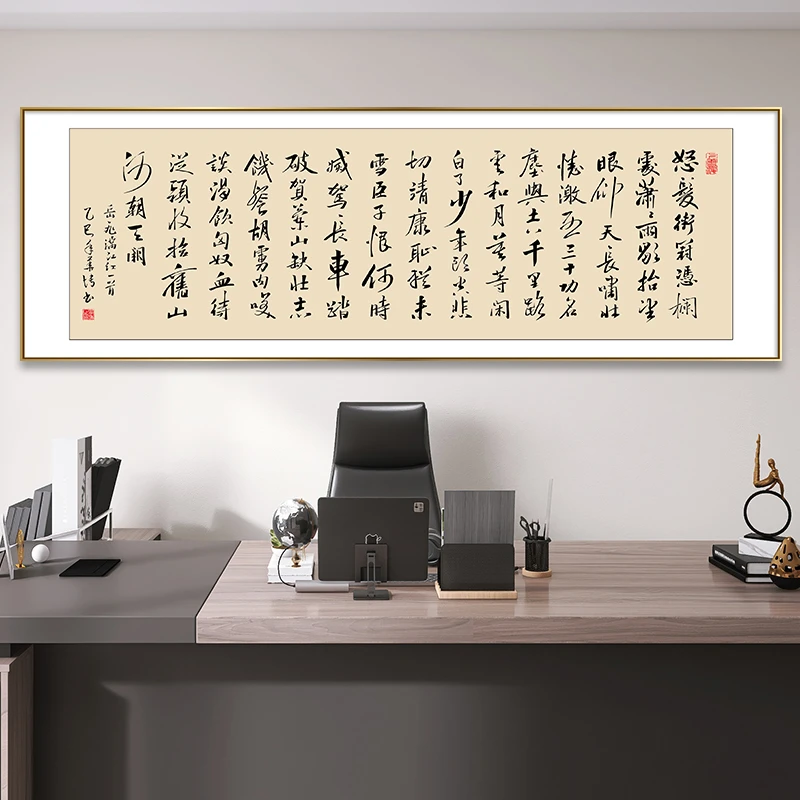 怒髮衝冠憑欄
處蕭々雨歇抬望
眼仰天長嘯壯
懷激烈三十功名
塵與土八千里路
雲和月莫等閑
白了少年頭空悲
切靖康恥猶未
雪臣子恨何時
滅駕長車踏
破賀蘭山缺壯志
饑餐胡虜肉笑
談渴飲匈奴血待
從頭收拾舊山
河朝天闕
岳飛滿江紅一首
乙巳年書